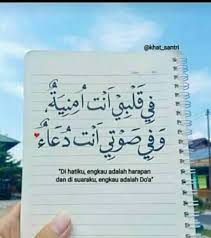 @khat_santri
فِي قَلْبِيْ أَنْتَ أُمْنِيَةٌ،
وَفِي صَوْتِي أَنْتَ دُعَاءٌ
"Di hatiku, engkau adalah harapan
dan di suaraku, engkau adalah Do'a"